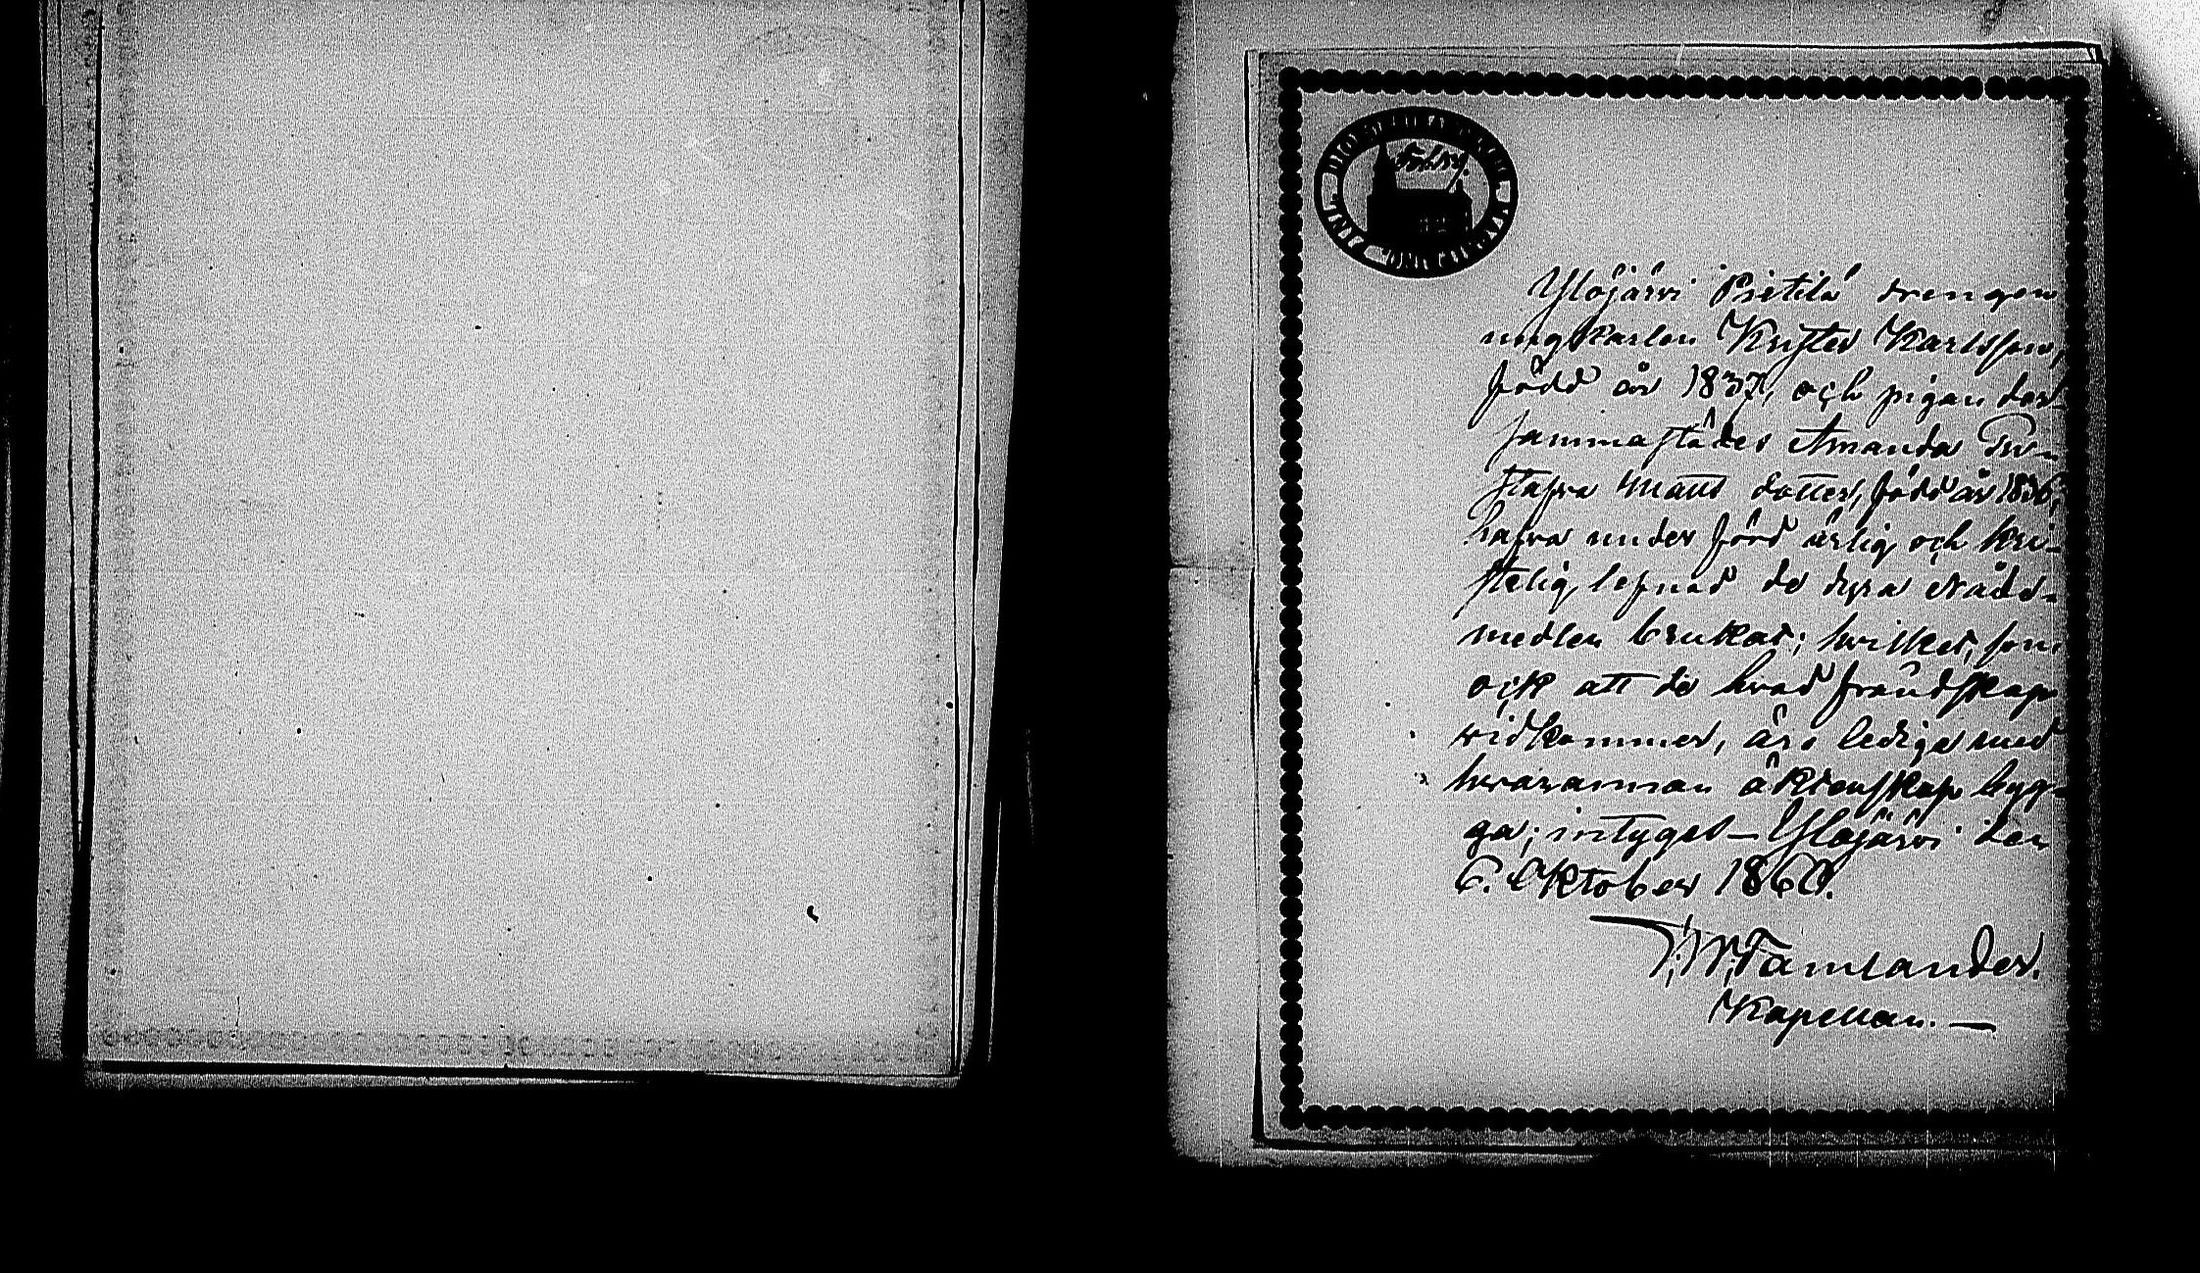 Ylöjärvi Pietilä drengen
ungkarlen Krister Karlsson,
född år 1837, och pigan der-
sammastädes Amanda Gu-
stafva Matts dotter, född år 1836,
hafva under förd ärlig och kri-
stelig lefnad de dyra Nåde-
medlen brukat; hvilket, som
ock att de hvad frändskap
vidkommer, äro lediga med
hvarannan äktenskap byg-
ga; intygas – Ylöjärvi den
6. Oktober 1860.
Tamlander.
Kapellan. —